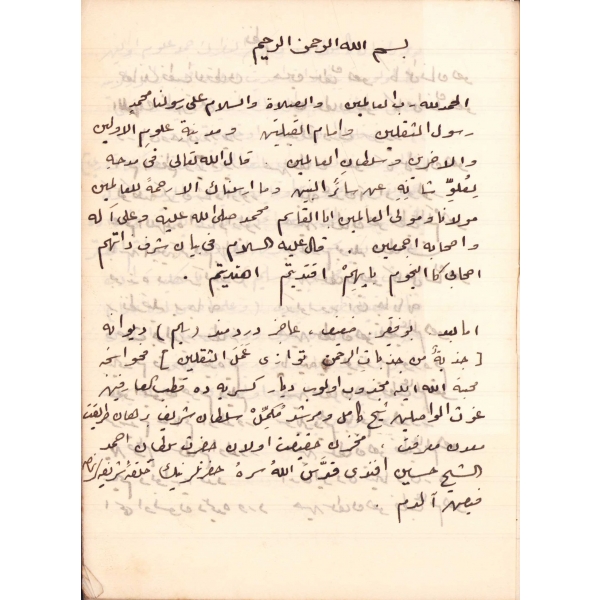 بسم الله الرحمن الرحيم
الحمد لله رب العالمين والصلاة والسلام على رسولنا محمد
رسول الثقلين وامام القبلتين ومدينة علوم الاولين
والاخرين وسلطان العالمين . قال الله تعالى فى مدحه
لِعُلوِّ شانه عن سائر النبيين وما ارسلناك الا رحمة للعالمين
مولانا ومولى العالمين ابا القاسم محمد صلى الله عليه وعلى آله
واصحابه اجمعين . قال عليه السلام فى بيان شرف ذاتهم
اصحابى كالنجوم بايهم اقتديتم اهتديتم .
اما بعد بو فقير ، ضعيف ، عاجز دردمند ديوانه
[ جذبةٌ من جذبات الرحمن توازى عَمَل الثقلين ]
محبة الله ايله مجذوب اولوب ديار كسريه ده قطب العارفين
غوث الواصلين شيخ كامل ومرشد مكمل سلطان شريف برهان طريقت
معدن معرفت ، مخزن حقيقت اولان حضرت سلطان احمد
الشيخ حسين افندى قدّس الله سره حضرتلرينك حلقۀ شريفه
فيض آلدم .